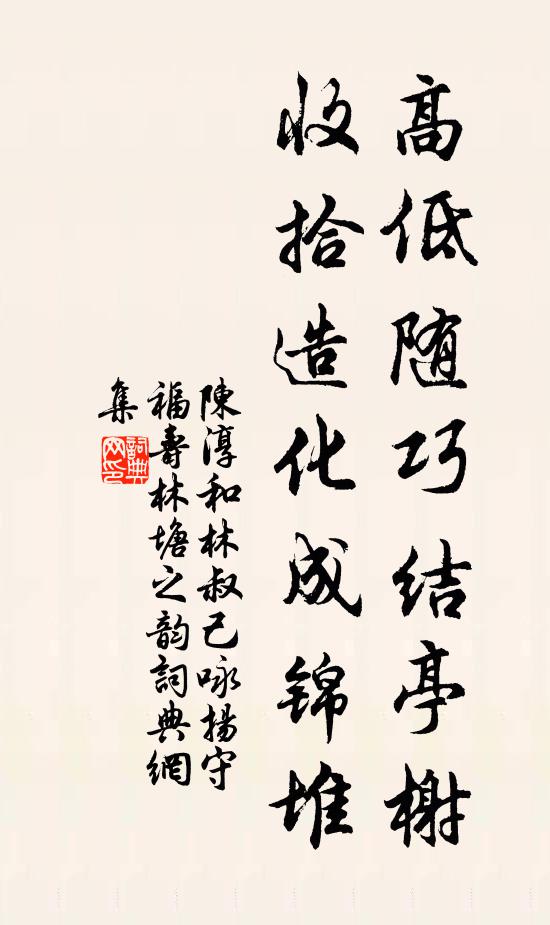 高低随巧结亭榭
收拾造化成锦堆
陳淳和林叔己咏揚守
福壽林塘之韵詞典網
集
詞典
网印